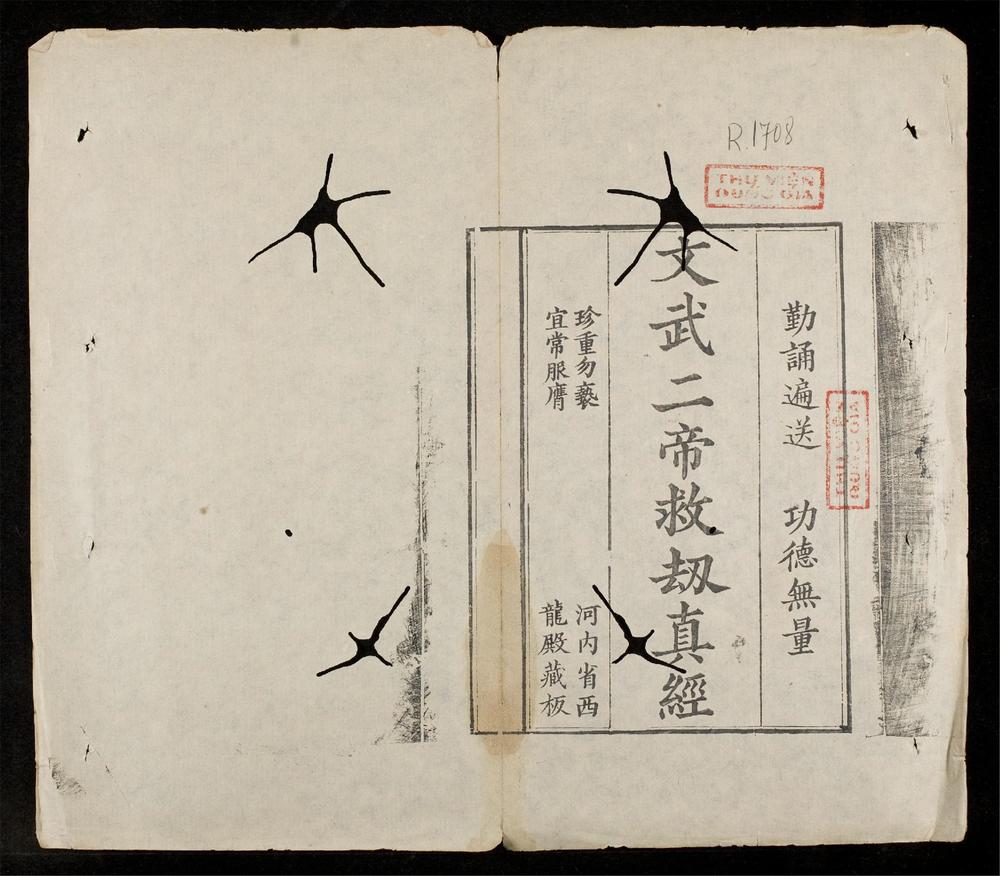 R.1708
THƯ VIỆN
QUỐC GIA
勤誦遍送 功德無量
文武二帝救刼真經
珍重勿褻
宜常服膺
河内省西
龍殿藏板